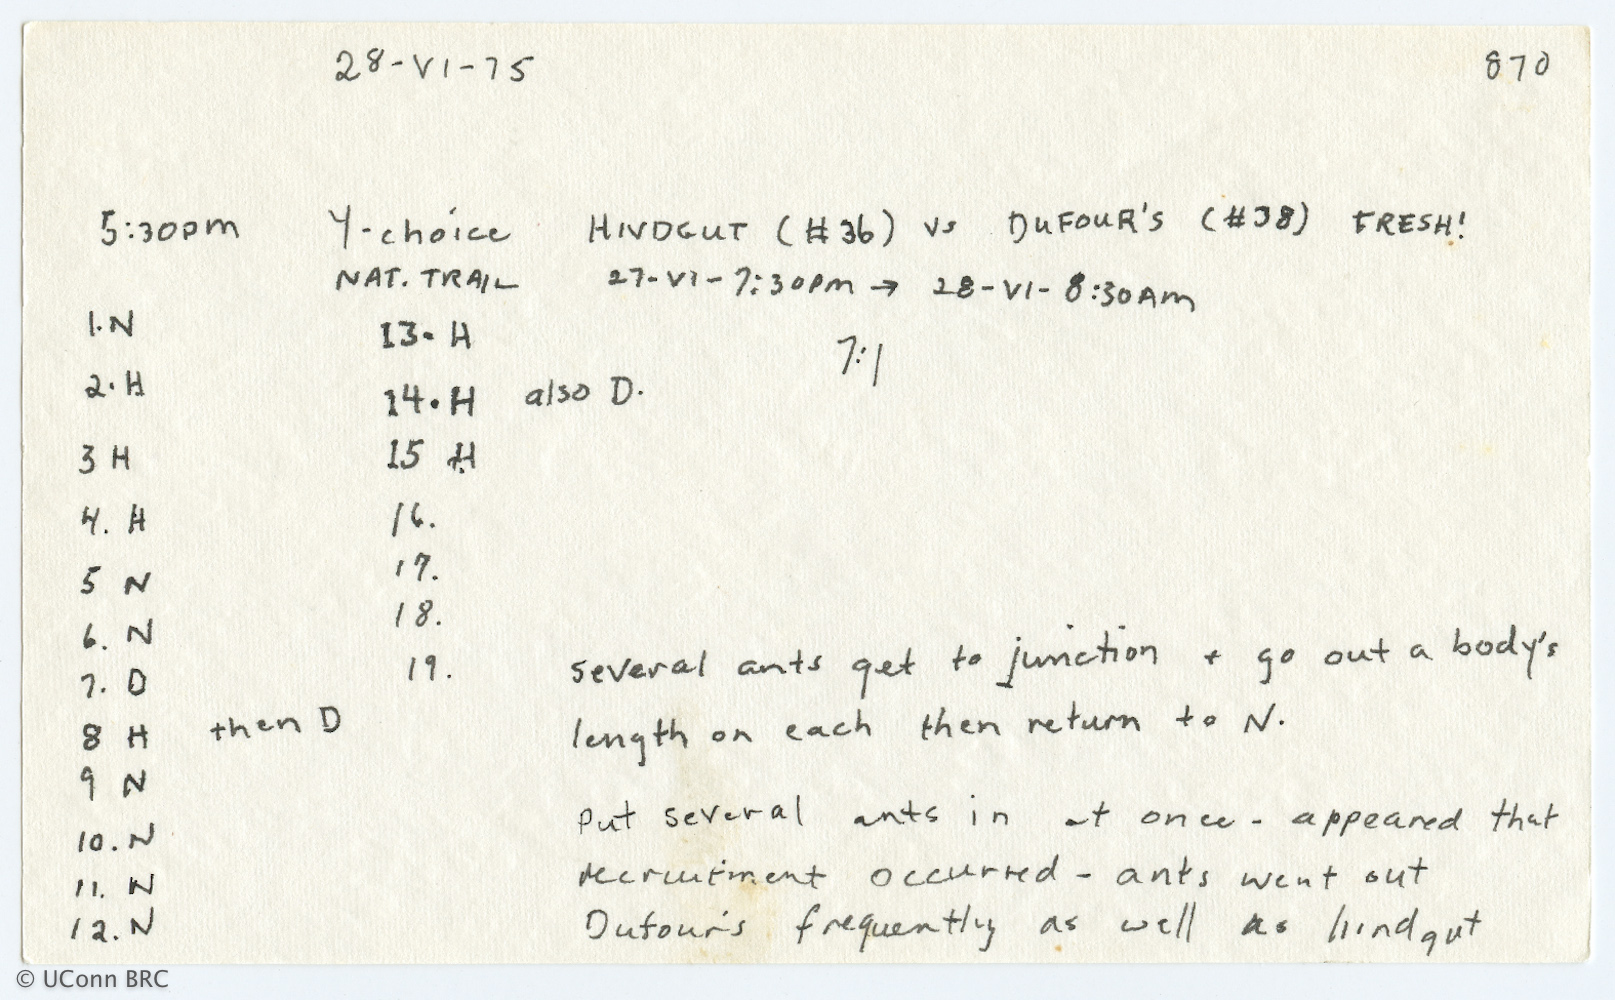 28-VI-75
870
5:30pm Y-choice HINDGUT (#36) vs DUFOUR'S (#38) FRESH!
NAT. TRAIL 27-VI-7:30pm → 28-VI-8:30Am
1. N
2. H
3 H
4. H
5 N
6. N
7. D
8 H then D
9 N
10. N
11. N
12. N
13. H
14. H also D.
15 H
16.
17.
18.
19.
7:1
several ants get to junction + go out a body's
length on each then return to N.
Put several ants in at once - appeared that
recruitment occurred - ants went out
Dufour's frequently as well as hindgut
© UConn BRC